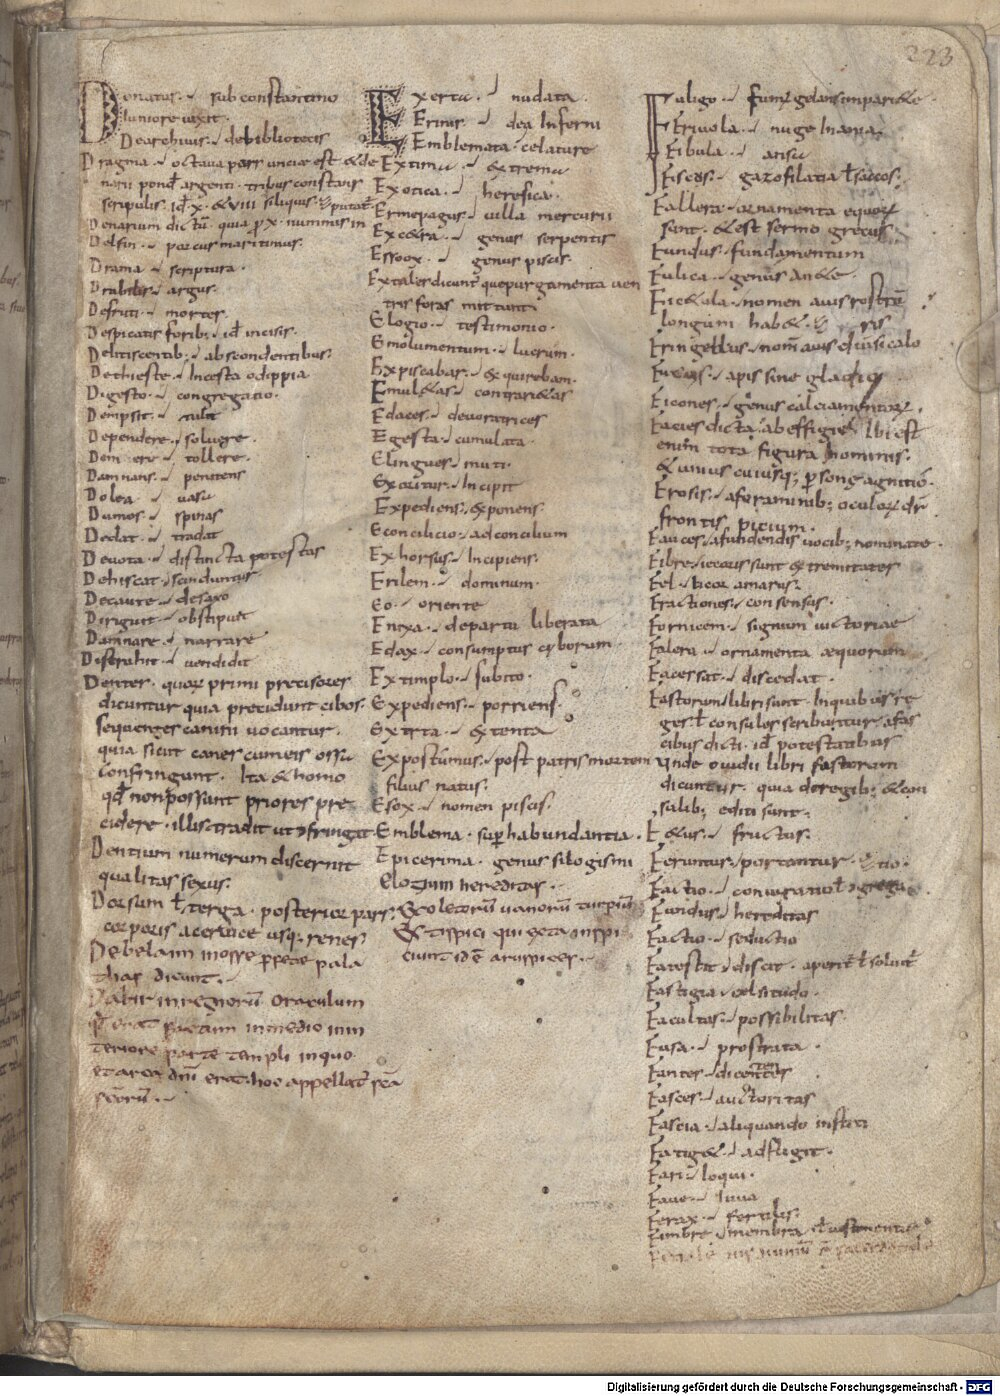 223
Donatus · sub constantino
iuniore vixit ·
Dearchivus · de bibliotecis
Dragma · octava pars unciae est & de
narii pond argenti · tribus constans
scripulis · id · x · & viii siliquis ·
Denarium dictū · quia p x · nummis in
Delfin · porcus maritimus ·
Drama · scriptura ·
argus ·
Defruti · mortes ·
Despicatis forib; id incisis ·
Delitiscentib; abscondentibus ·
Incesta odippia
Digesto · congregatio ·
Dempsit · tulit
Dependere · soluere ·
tollere ·
Damnans · penitens
Dolea · uasa
Dumos · spinas
Dedat · tradat
Deuota · distincta potestas
Dehiscat · scinduntur
Decaure · desaxo
Diriguit · obstipuit
Damnare · narrare
Distrahit · uendidit
Denter · quare primi precisores
dicuntur quia precidunt cibos ·
sequenges canini uocantur ·
quia sicut canes cumeis ossa
confringunt · Ita & homo
qd non possunt priores pre
cidere · illis tradit ut fringit
Dentium numerum discernit
qualitas sexus ·
Dorsum ł terga · posterior pars
corporis a ceruice usq; renes
Debelaim mosse pala
thas dicunt ·
Dabir in regnorū oraculum
in medio inin
teriore parte templi in quo
erat · hoc appellat scā
scōrū ·
Exerta · nudata ·
Erinis · dea Inferni
Emblemata · celature
Extima · extrema
Exotica · heresica ·
Ermepagus · uilla mercurii
Excedra · genus serpentis
Essoox · genus piscis ·
Extales dicunt que purgamenta uen
tris foras mittunt
Elogio · testimonio ·
Emolumentum · lucrum ·
Expiscabar · exquirebam ·
Emul&as · contrari&as
Edaces · deuoratrices
Egesta · cumulata ·
Elingues · muti ·
Exoritur · Incipit
Expediens · exponens ·
Econcilicio · ad concilium
Exhorsus · Incipiens ·
Erilem · dominum ·
Eo · oriente
Enixa · de partu liberata
Edax · consumptus cyborum
Extimplo · subito ·
Expediens · porriens ·
Exerta · extenta
Expostumus · post patris mortem
filius natus ·
Esox · nomen piscis ·
Emblema · sup habundantia ·
Epicerima · genus silogismi
Elogium hereditas ·
Exoletorū uanorū turpiū
Extispici qui exta inspi
ciunt idē aruspices ·
Fuligo · fumi
Friuola · nuge Inania
Fibula · ansa
Fiscos · gazofilatia ł saccos ·
Fallera · ornamenta equor
sunt · & est sermo grecus
Fundus · fundamentum
Fulica · genus
Ficedula · nomen auis rostrū
longum habet · ris
Fringellus · nomē auis quasi calo
Fucus · apis sine gladiis
Ficones · genus calciamentor
Facies dicta · ab effigie Ibi est
enim tota figura hominis ·
& unius cuiusq; psone agnitio ·
Frosis · a foraminib; oculor dr
frontis picium ·
Fauces · a fundendis uocib; nominate ·
Fibre · iecoris sunt extremitates
Fel · licor amarus ·
Fractiones · consensus ·
Fornicem · signum uictoriae
Falera · ornamenta aequorum
Facessit · discedat ·
Fastorum · libri sunt Inquibus re
ges ł consules scribuntur · a fas
cibus dicti · id potestatibus
Unde ouidii libri fastorum
dicuntur · quia de regib; & con
sulib; editi sunt ·
F&us · fructus ·
Feruntur · portantur ·
Factio · coniuratio ł
Fundus · hereditas
Factio · seductio
Fatescit · discit · aperit ł soluit
Fastigia · celsitudo ·
Facultas · possibilitas ·
Fusa · prostrata ·
Fantes · dicentes
Fasces · auctoritas
Fascia · aliquando
Fatiget · adfligit ·
Fari · loqui ·
Faue · Iuua
Ferax · fertilis ·
Fimbre · membra
Digitalisierung gefördert durch die Deutsche Forschungsgemeinschaft · DFG